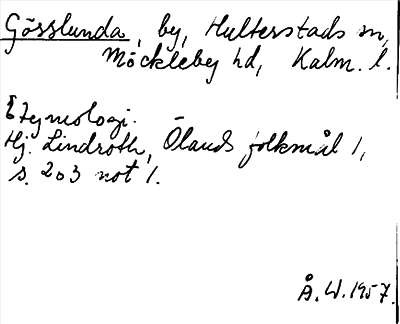 Gösslunda, by, Hulterstads sn,
Möckleby hd, Kalm. l.
Etymologi.
Hj. Lindroth, Ölands folkmål 1,
s. 203 not 1.
Å. W. 1957.